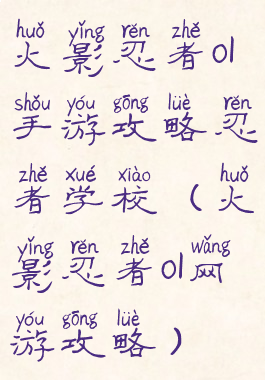 huǒ yǐng rěn zhě
火影忍者ol
shǒu yóu gōng lüè rěn
手游攻略忍
zhě xué xiào huǒ
者学校（火
yǐng rěn zhě wǎng
影忍者ol网
yóu gōng lüè
游攻略）